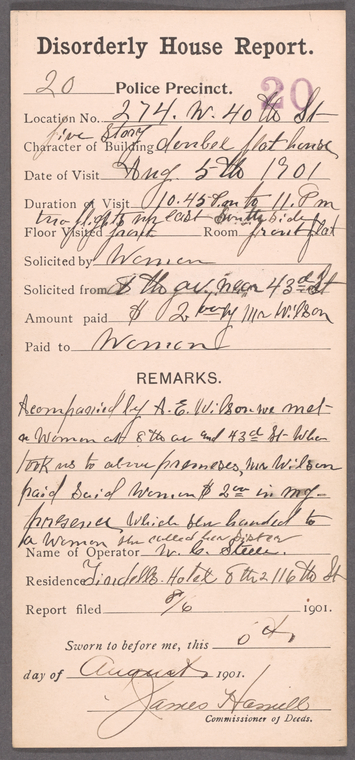 Disorderly House Report.
20 Police Precinct. 20
Location No. 274. W. 40th St
five Story
Character of Building double flat house
Date of Visit Aug 5th 1901
Duration of Visit 10.45 P.m to 11. P m
two flights up east South side
Floor Visited front Room front flat
Solicited by Woman
Solicited from 8th av. near 43rd St
Amount paid $ 2 00 by Mr Wilson
Paid to Woman
REMARKS.
Acompanied by A. E. Wilson we met
a Woman at 8th av and 43d St Who
took us to above premeses, Mr Wilson
paid Said Woman $ 2 00 in my
presence, Which she handed to
a Woman she called her Sister
Name of Operator W. C. Steele.
Residence Hotel 8th 116th St
Report filed 8/6 1901.
Sworn to before me, this 6th
day of August 1901.
James Hamill
Commissioner of Deeds.